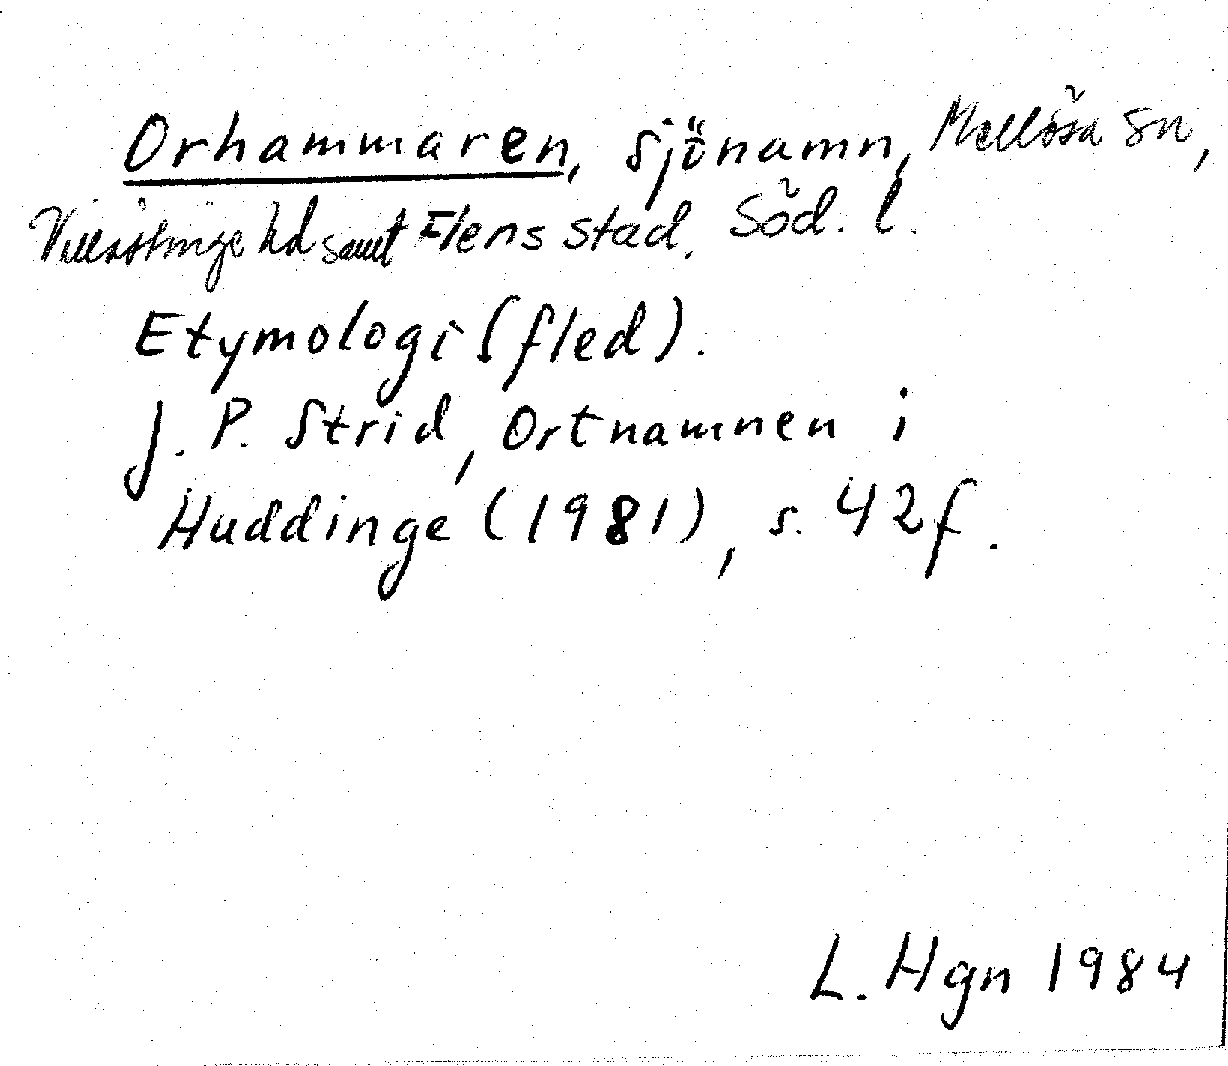 Orhammaren, sjönamn, Mellösa sn,
Villåttinge hd samt Flens stad. Söd. l.
Etymologi (fled).
J. P. Strid, Ortnamnen i
Huddinge (1981), s. 42f.
L. Hgn 1984